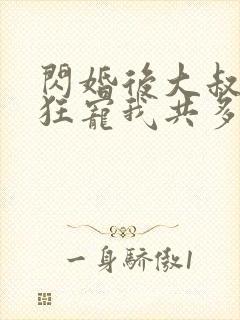 閃婚後大叔
狂寵我共多
一身驕傲1